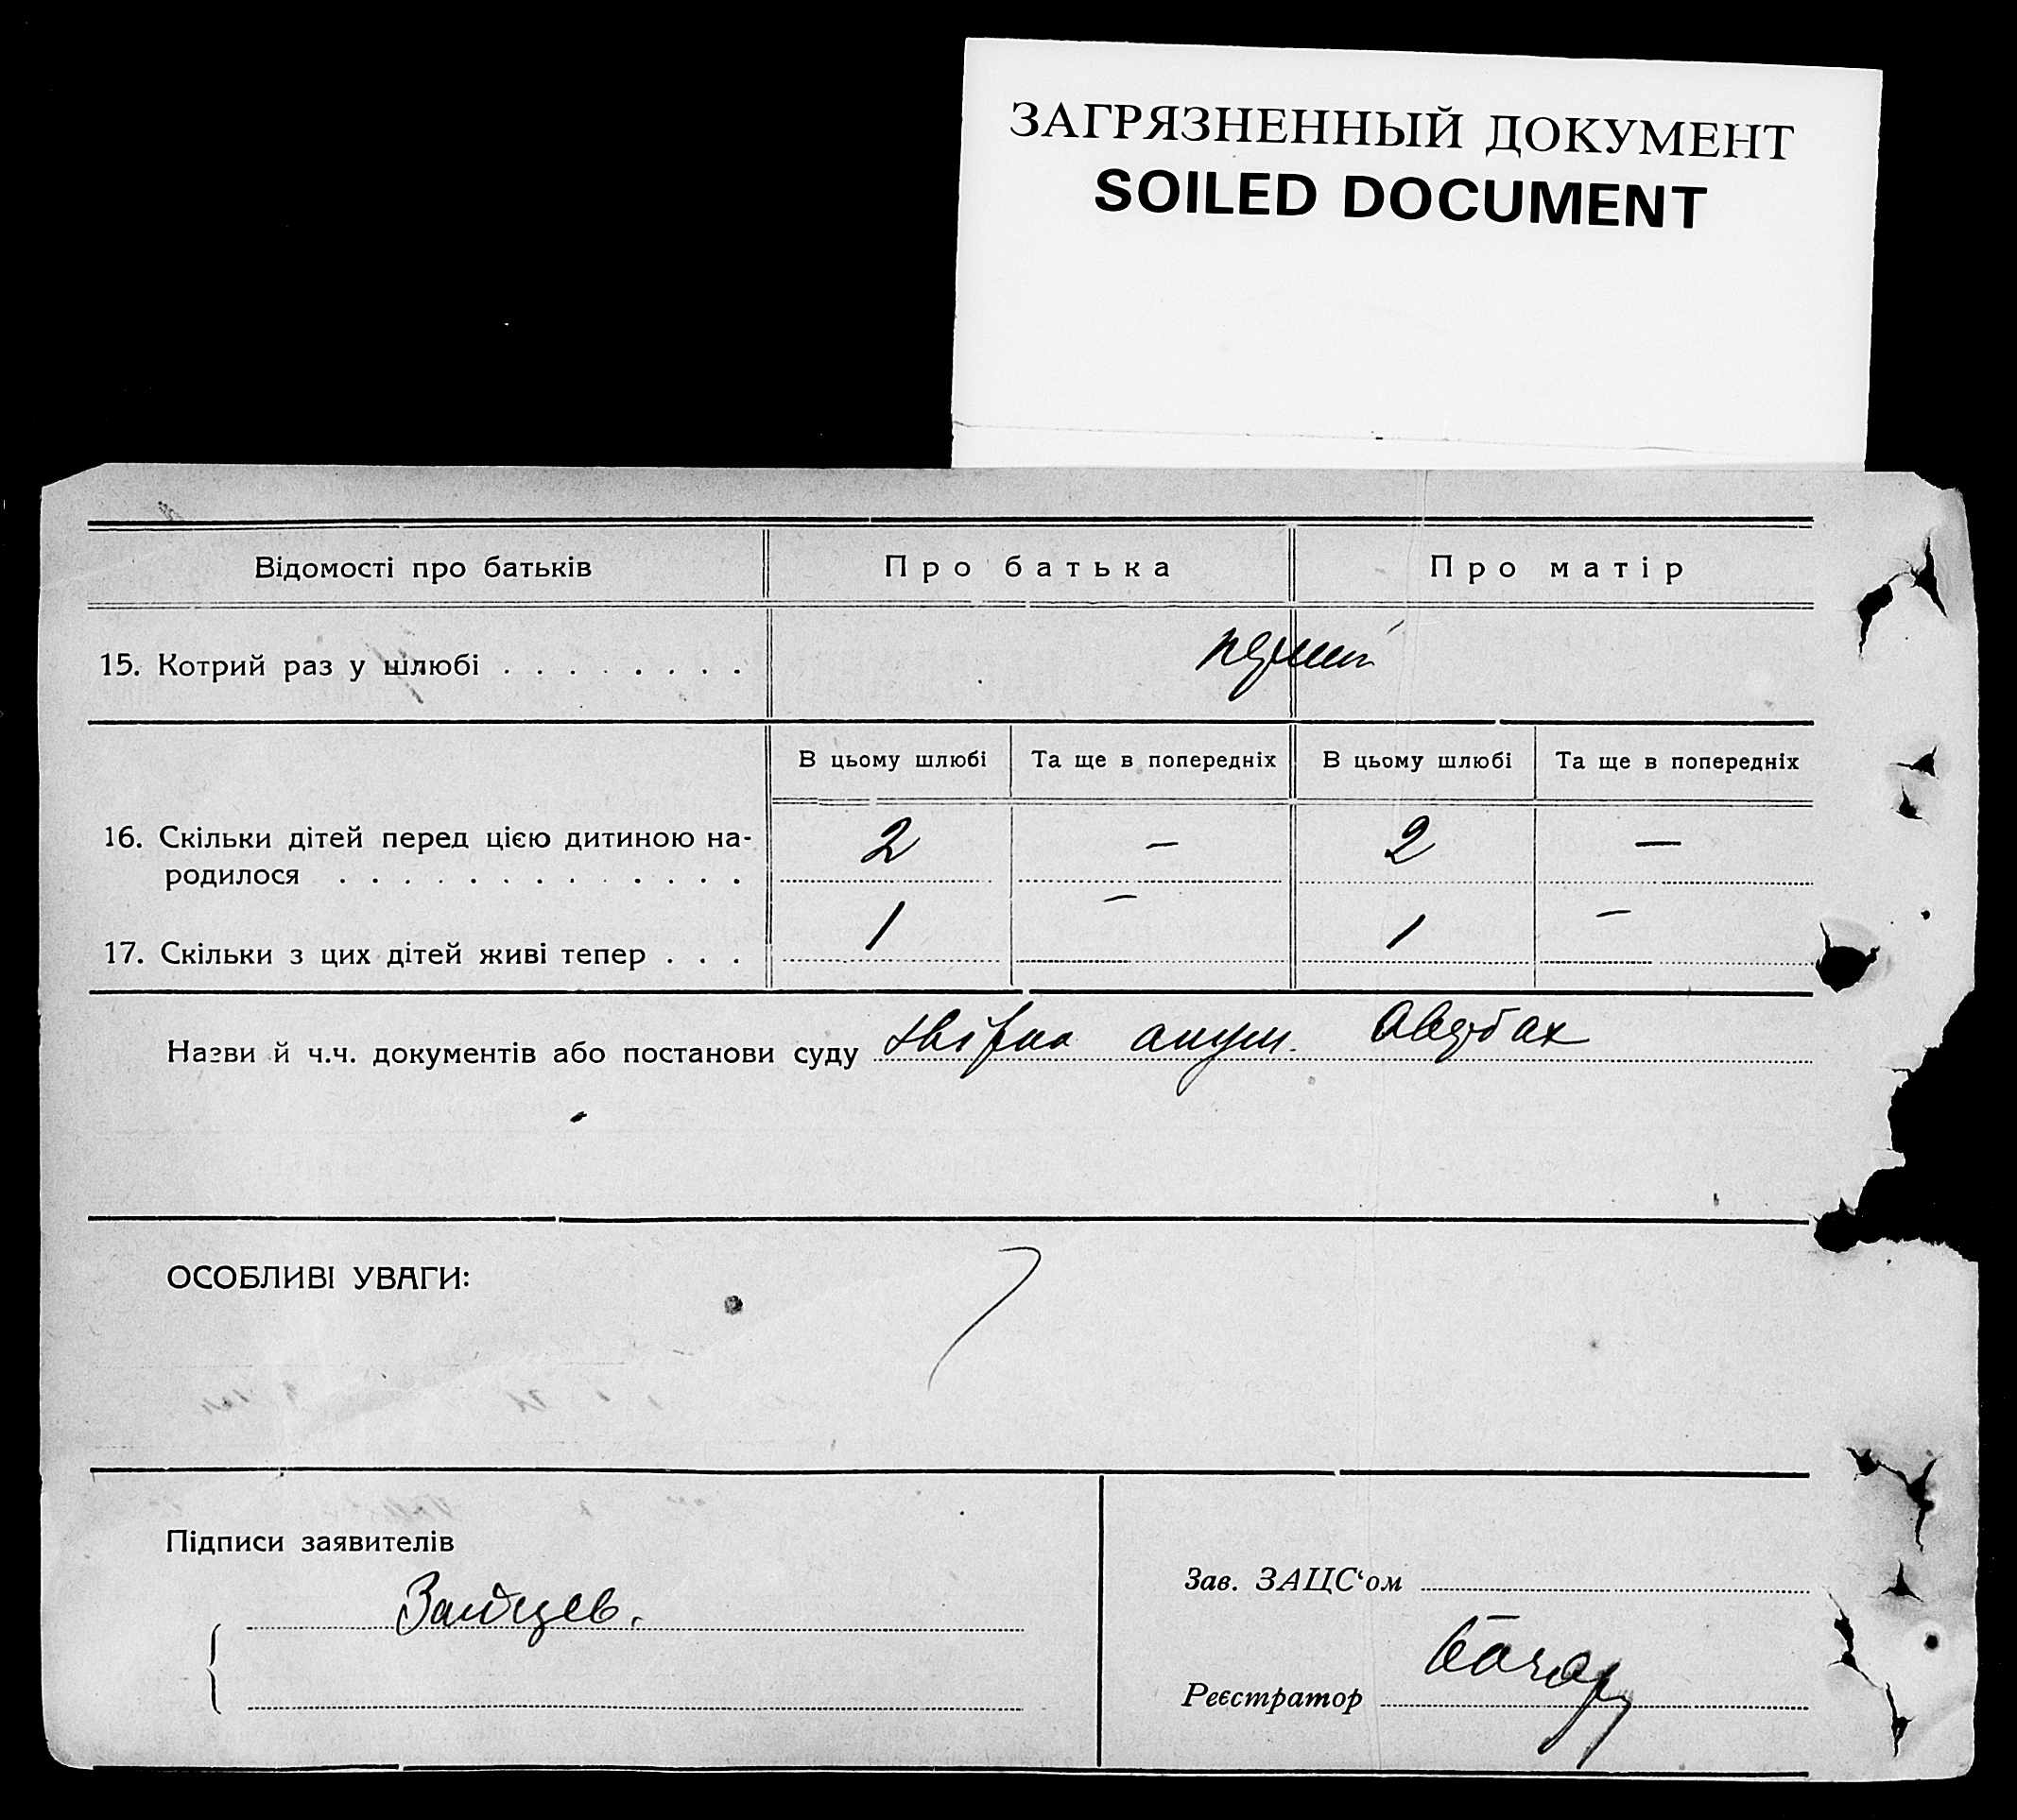 ЗАГРЯЗНЕННЫЙ ДОКУМЕНТ
SOILED DOCUMENT
Відомості про батьків Про батька Про матір
15. Котрий раз у шлюбі . . . . . . . .
В цьому шлюбі Та ще в попередніх В цьому шлюбі Та ще в попередніх
16. Скільки дітей перед цією дитиною на-
родилося . . . . . . . . . . . . . 2 — 2 —
17. Скільки з цих дітей живі тепер . . . 1 — 1 —
Назви й ч.ч. документів або постанови суду акуш. Авербах
ОСОБЛИВІ УВАГИ:
Підписи заявителів
Зайцев.
Зав. ЗАЦС'ом
Реєстратор